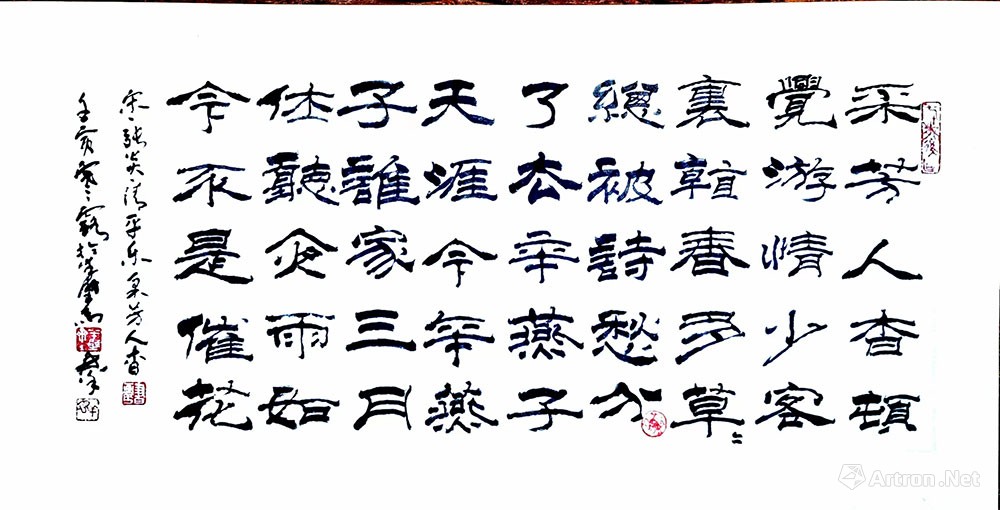 采芳人杳頓
覺游情少客
裏看春多草〻
總被詩愁分
了去年燕子
天涯今年燕
子誰家三月
休聽夜雨如
今不是催花
宋張炎清平乐采芳人杳
壬寅寒露於
Artron.Net